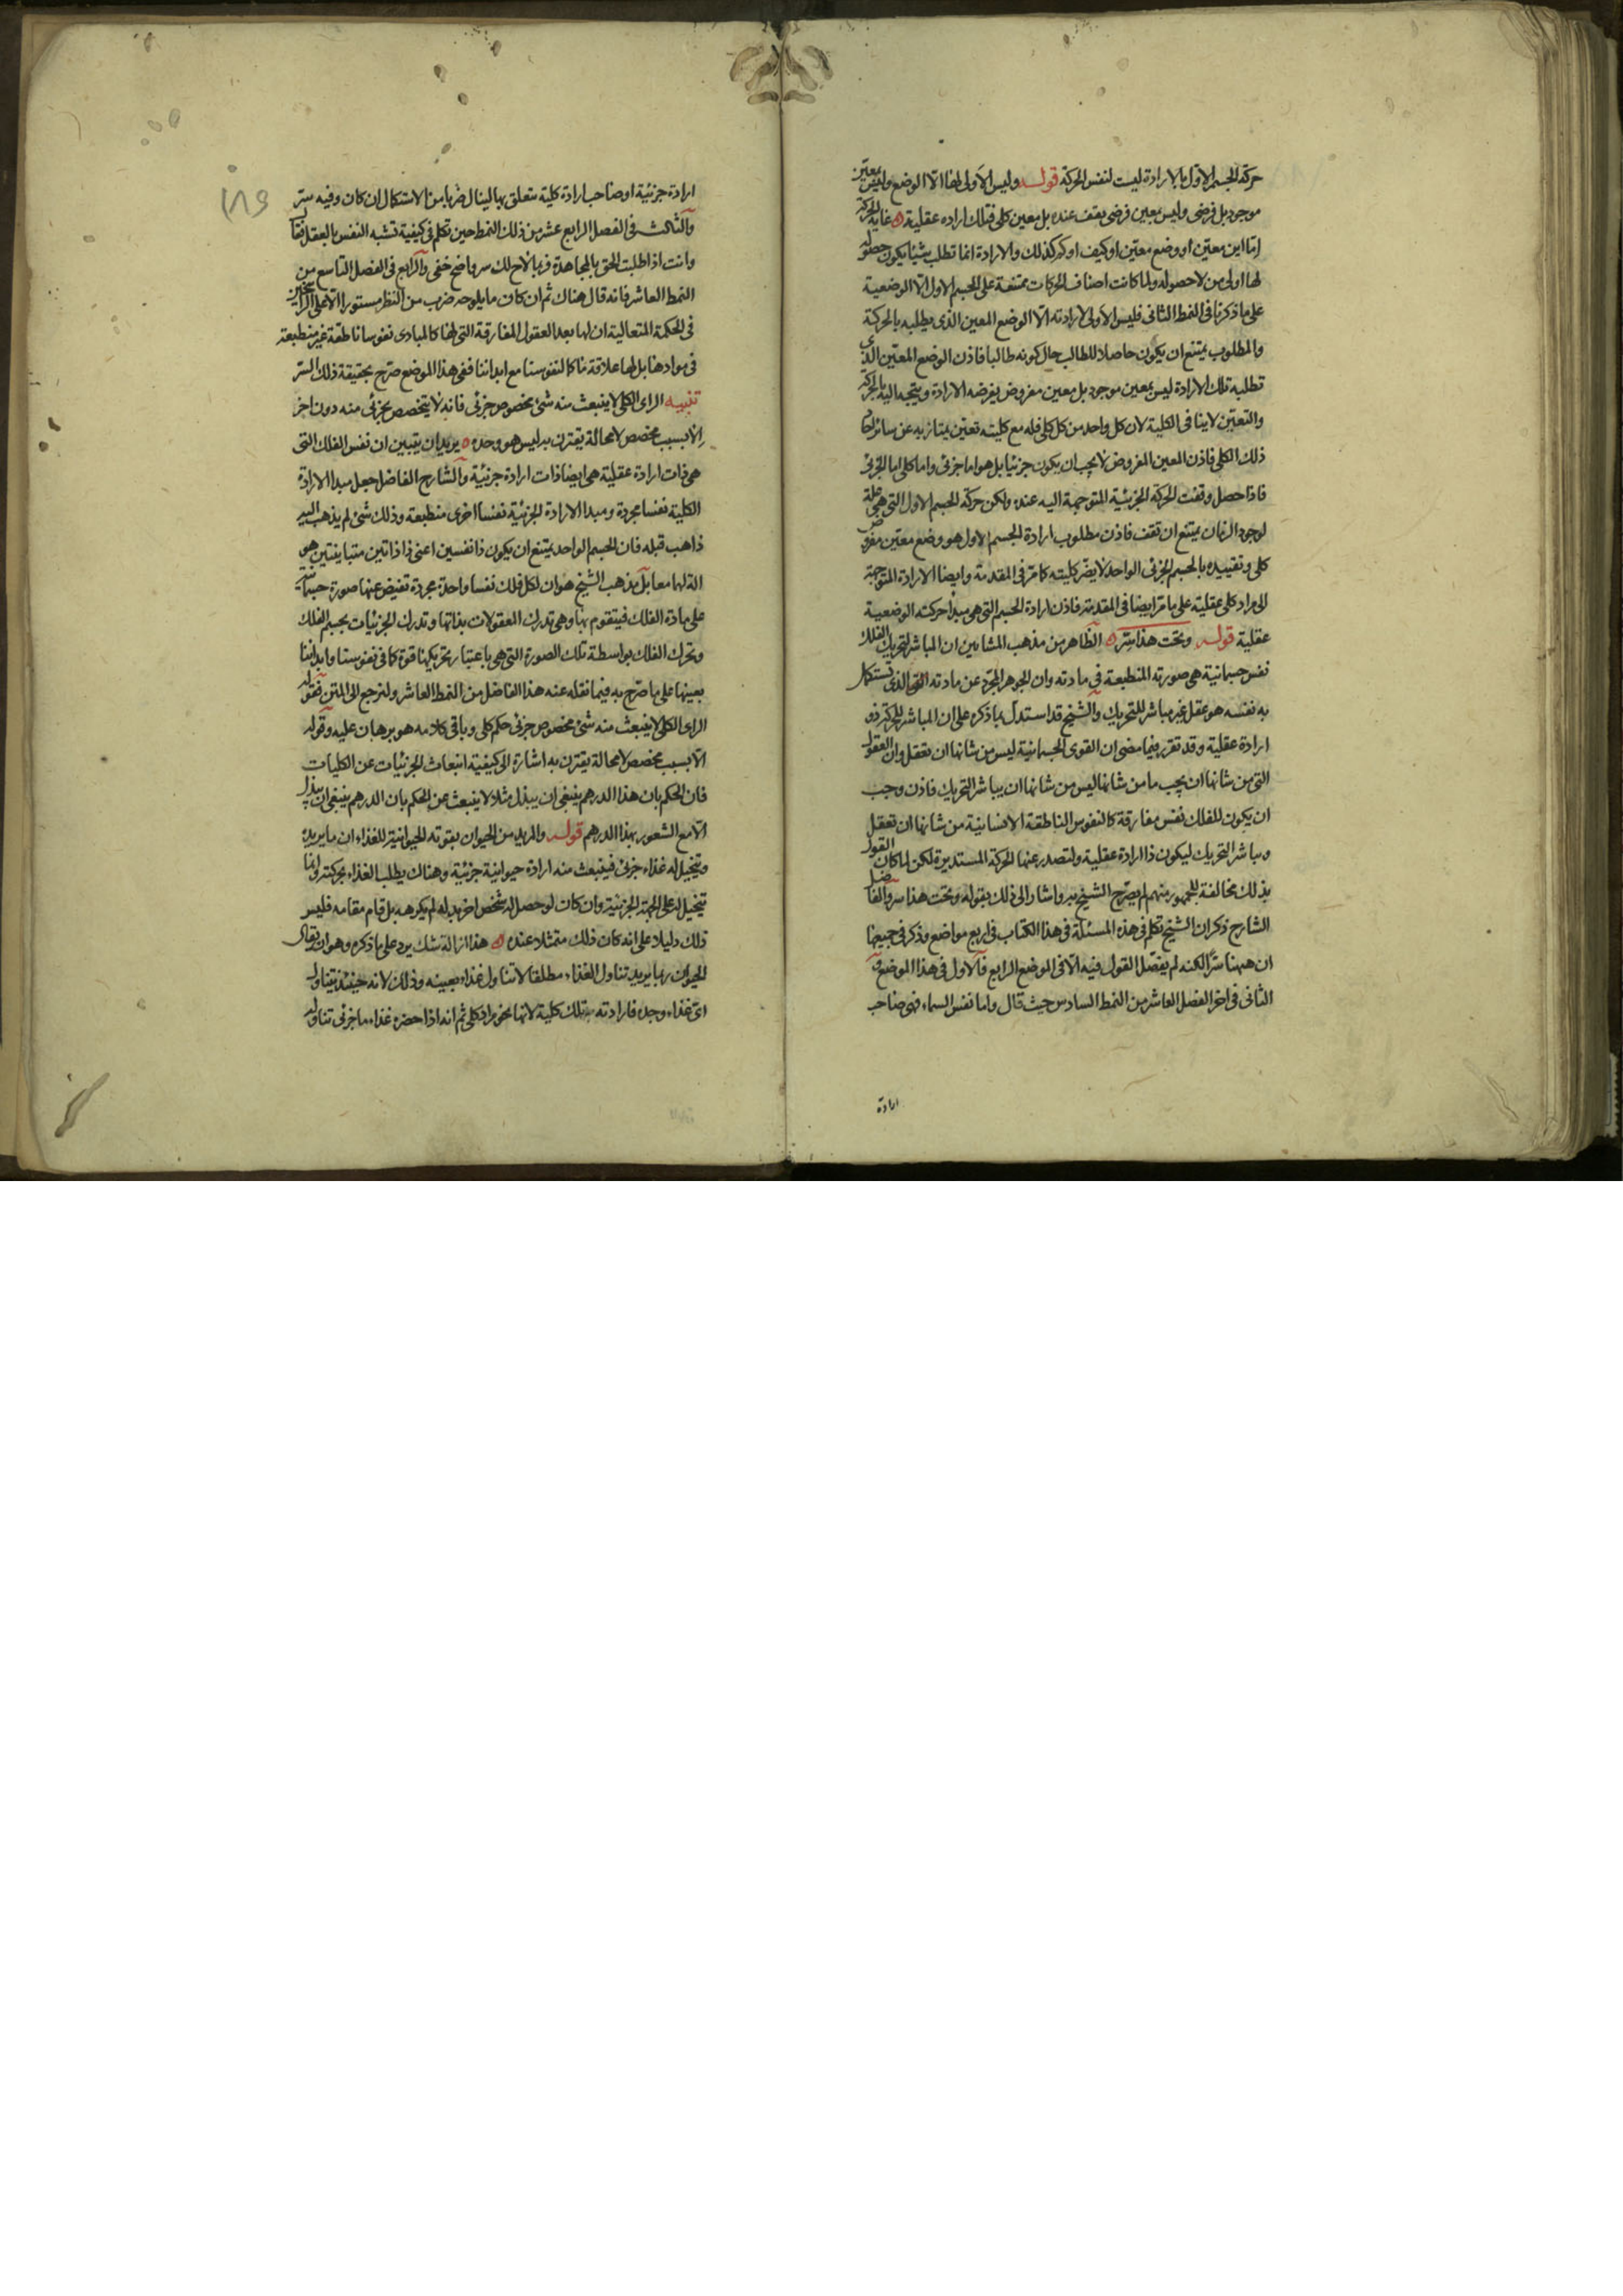 حركة الجسم الاول بالارادة ليست لنفس الحركة قوله وليس الاولى لها الا الوضع وليس بمعين
موجود بل فرضى وليس بمعين فرضى يقف عنده بل معين كلى فتلك ارادة عقلية ه غاية الحركة
اما اين معين او وضع معين او كيف او كم كذلك والارادة انما تطلب شيئا يكون حصوله
لها اولى من لا حصوله ولما كانت اصناف الحركات ممتنعة على الجسم الاول الا الوضعية
على ما ذكرنا فى النمط الثانى فليس الاولى لارادته الا الوضع المعين الذى يطلبه بالحركة
والمطلوب يمتنع ان يكون حاصلا للطالب حال كونه طالبا فاذن الوضع المعين الذى
تطلبه تلك الارادة ليس بمعين موجود بل معين مفروض يفرضه الارادة ويتجه اليه بالحركة
والتعين لا ينافى الكلية لان كل واحد من كل كلى فله مع كليته تعين يمتاز به عن سائر احاد
ذلك الكلى فاذن المعين المفروض لا يجب ان يكون جزئيا بل هو اما جزئى واما كلى اما الجزئى
فاذا حصل وقفت الحركة الجزئية المتوجهة اليه عنده ولكن حركة الجسم الاول التى هى علة
لوجود الزمان يمتنع ان تقف فاذن مطلوب ارادة الجسم الاول هو وضع معين مفروض
كلى وتقييده بالجسم الجزئى الواحد لا يضر كليته كما مر فى المقدمة وايضا الارادة المتوجهة
الى مراد كلى عقلية على ما مر ايضا فى المقدمة فاذن ارادة الجسم التى هى مبدا حركته الوضعية
عقلية قوله وتحت هذا سر ه الظاهر من مذهب المشايين ان المباشر لتحريك الفلك
نفس جسمانية هى صورته المنطبعة فى مادته وان الجوهر المجرد عن مادته الذى تستكمل
به نفسه هو عقل غير مباشر للتحريك والشيخ قد استدل بما ذكره على ان المباشر للحركة ذو
ارادة عقلية وقد تقرر فيما مضى ان القوى الجسمانية ليس من شانها ان تعقل وان العقول
التى من شانها ان يجب ما من شانها ليس من شانها ان يباشر التحريك فاذن وجب
ان يكون للفلك نفس مفارقة كالنفوس الناطقة الانسانية من شانها ان تعقل
وتباشر التحريك ليكون ذا ارادة عقلية ولتصدر عنها الحركة المستديرة لكن لما كان القول
بذلك مخالفة للجمهور منهم لم يصرح الشيخ به واشار الى ذلك بقوله وتحت هذا سر والفاضل
الشارح ذكر ان الشيخ تكلم فى هذه المسئلة فى هذا الكتاب فى اربع مواضع وذكر فى جميعها
ان ههنا سرا لكنه لم يفصل القول فيه الا فى الموضع الرابع فالاول فى هذا الموضع و
الثانى فى اخر الفصل العاشر من النمط السادس حيث قال واما نفس السماء فهى صاحب
ارادة
ارادة جزئية او صاحب ارادة كلية متعلق بها لينال ضربا من الاستكمال ان كان وفيه سر
والثالث فى الفصل الرابع عشر من ذلك النمط حين تكلم فى كيفية تشبه النفس بالعقل فقال
وانت اذا طلبت الحق بالمجاهدة فربما لاح لك سر واضح خفى والرابع فى الفصل التاسع من
النمط العاشر فانه قال هناك ثم ان كان ما يلوحه ضرب من النظر مستورا الا على الراسخين
فى الحكمة المتعالية ان لها بعد العقول المفارقة التى لها كالمبادى نفوسا ناطقة غير منطبعة
فى موادها بل لها علاقة ما كما لنفوسنا مع ابداننا ففى هذا الموضع صرح بحقيقة ذلك السر
تنبيه الراى الكلى لا ينبعث منه شئ مخصوص جزئى فانه لا يتخصص بجزئى منه دون اخر
الا بسبب مخصص لا محالة يقترن به ليس هو وحده ه يريد ان يتبين ان نفس الفلك التى
هى ذات ارادة عقلية هى ايضا ذات ارادة جزئية والشارح الفاضل جعل مبدا الارادة
الكلية نفسا مجردة ومبدا الارادة الجزئية نفسا اخرى منطبعة وذلك شئ لم يذهب اليه
ذاهب قبله فان الجسم الواحد يمتنع ان يكون ذا نفسين اعنى ذا ذاتين متباينتين هو
الة لهما معا بل مذهب الشيخ هو ان لكل فلك نفسا واحدة مجردة تفيض عنها صورة جسمانية
على مادة الفلك فيتقوم بها وهى تدرك المعقولات بذاتها وتدرك الجزئيات بجسم الفلك
وتحرك الفلك بواسطة تلك الصورة التى هى باعتبار تحريكها قوة كما فى نفوسنا وابداننا
بعينها على ما صرح به فيما نقله عنه هذا الفاضل من النمط العاشر ولنرجع الى المتن فقوله
الراى الكلى لا ينبعث منه شئ مخصوص جزئى حكم كلى وباقى كلامه هو برهان عليه وقوله
الا بسبب مخصص لا محالة يقترن به اشارة الى كيفية انبعاث الجزئيات عن الكليات
فان الحكم بان هذا الدرهم ينبغى ان يبذل مثلا لا ينبعث عن الحكم بان الدرهم ينبغى ان يبذل
الا مع الشعور بهذا الدرهم قوله والمريد من الحيوان بقوته الحيوانية للغذاء ان ما يريده
ويتخيل له غذاء جزئى فينبعث منه ارادة حيوانية جزئية وهناك يطلب الغذاء بحركته وانما
تتخيل له على الجهة الجزئية وان كان لو حصل له شخص اخر بدله لم يكرهه بل قام مقامه فليس
ذلك دليلا على انه كان ذلك متمثلا عنده ه هذا ازالة شك يرد على ما ذكره وهو ان يقال
الحيوان ربما يريد تناول الغذاء مطلقا لا تناول غذاء بعينه وذلك لانه حينئذ يتناول
اى غذاء وجده فارادته تلك كلية لانها نحو مراد كلى ثم انه اذا حضره غذاء ما جزئى تناوله